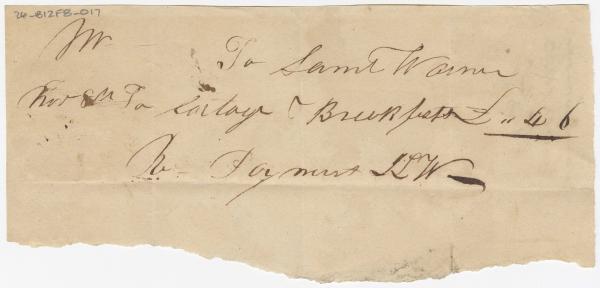 24-B12F8-017
Mr
To Saml Warner
Nov 8th To Lodlogs & Breekfast £ " 4 6
Re Payment SW